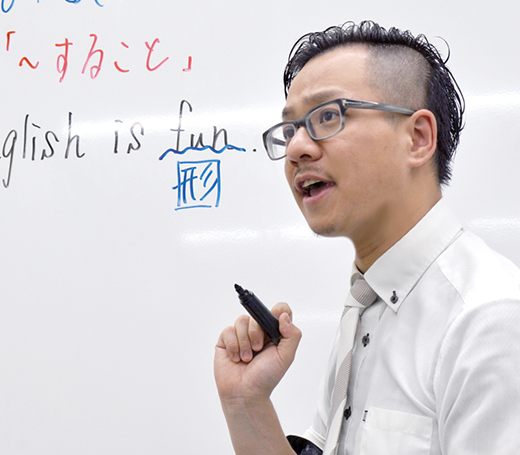 「～すること」
glish is fun.
形